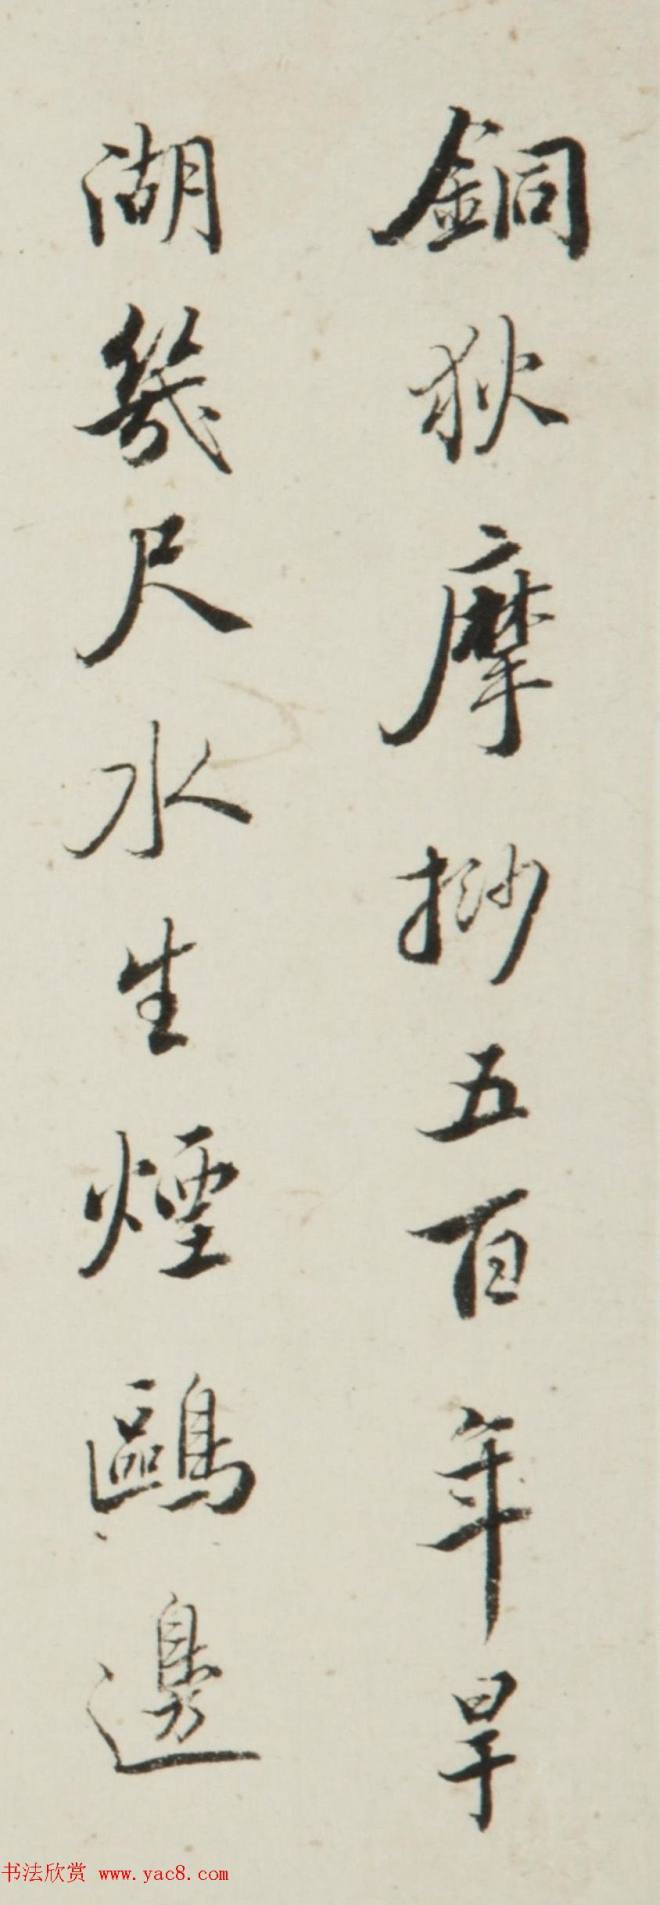 銅狄摩挲五百年旱
湖幾尺水生煙鷗邊
书法欣赏 www.yac8.com